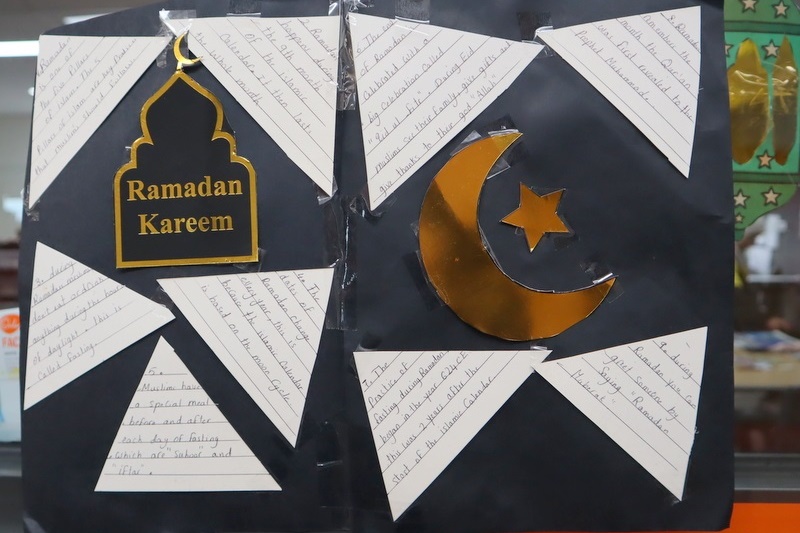 1. Ramadan
is one of
the five Pillars
of islam. This
Pillars of islam are key Practice
that muslims should follow.
2. Ramadan
happens during
the 9th month
of the islamic
Calendar. It then last
the whole month
of Ramadan
Celebrated with a
big Celebration called
"Eid il Fitr". During Eid
muslims See their Family, give gifts and
give thanks to their god "Allah"
8. Ramadan
remembers the
month the Qur'an
was first revealed to the
Prophet Muhammad.
Ramadan
Kareem
3. during
Ramadan muslims
dont eat or drink
anything during the hours
of daylight. This is
Called fasting.
4. The
dates of
Ramadan change
every year. This is
because the islamic Calendar
is based on the moon Cycle.
5.
Muslims have
a special meal
before and after
each day of fasting
which are "Suhoor" and
"iftar".
7. The
Practice of
fasting during Ramadan
began in the year 624 CE
this was 2 years after the
start of the islamic Calendar
during
Ramadan you can
greet someone by
Saying "Ramadan
Mubarak"